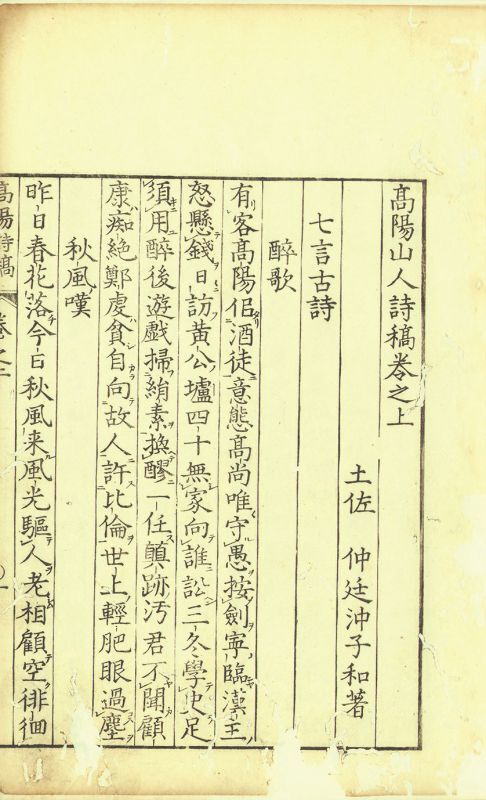 髙陽山人詩稿巻之上
土佐 仲廷沖子和著
七言古詩
醉歌
有客髙陽侣酒徒意態髙尚唯守愚按劍寧臨漢王
怒懸錢日訪黄公壚四十無家向誰訟三冬學史足
須用醉後遊戯掃綃素換醪一任顛跡汚君不聞顧
康痴絶鄭虔貧自向故人許比倫世上輕肥眼過塵
秋風嘆
昨日春花落今日秋風来風光驅人老相顧空徘徊
髙陽詩稿 巻之上